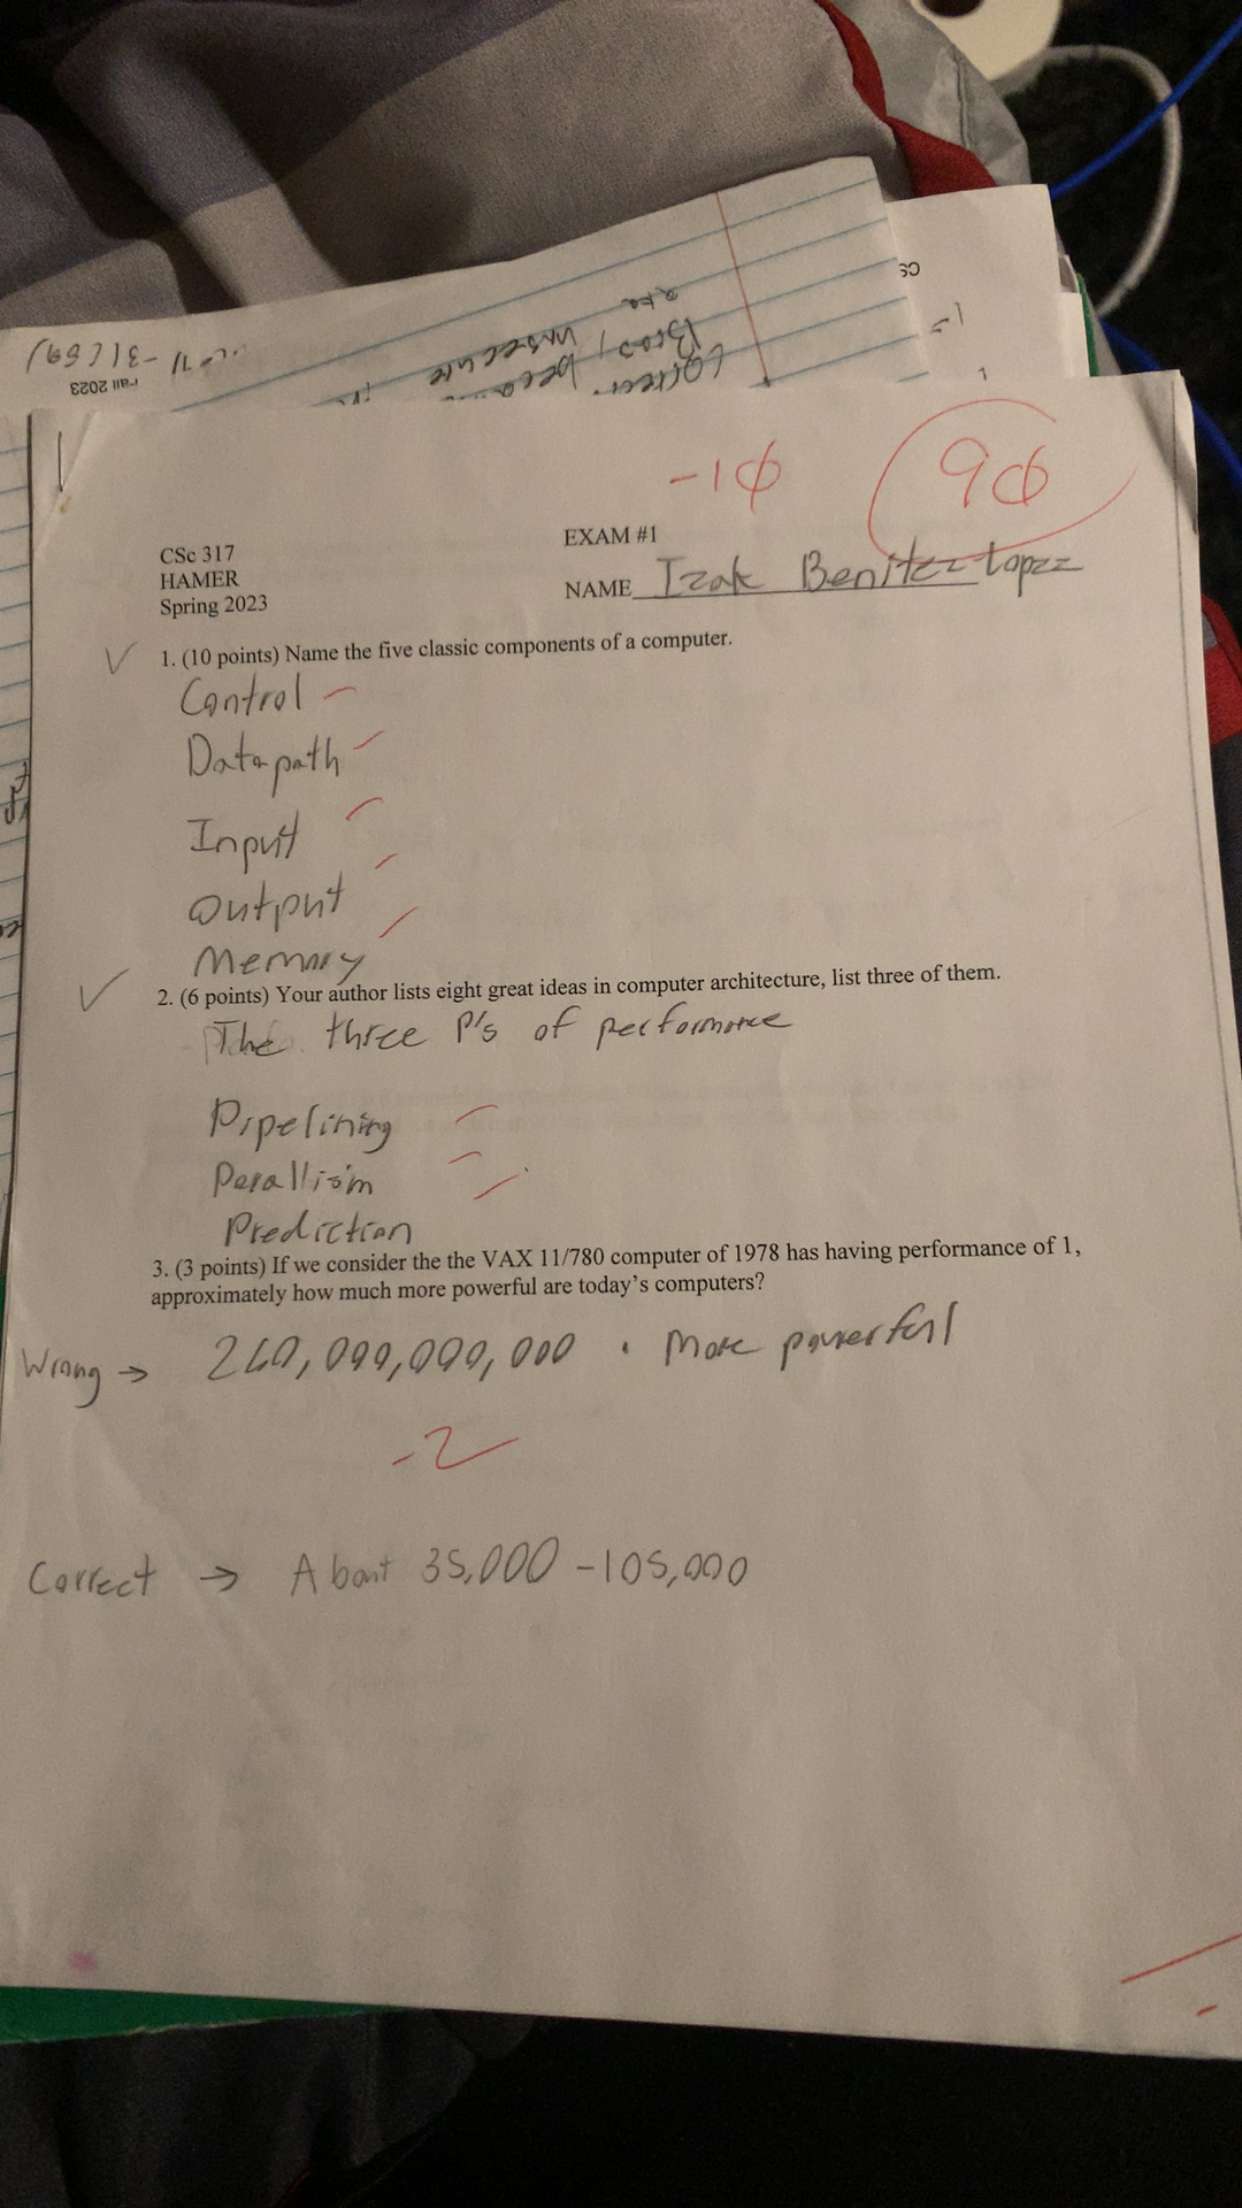 Fall 2023
CS
-10
90
CSc 317
HAMER
Spring 2023
EXAM #1
NAME Izak Benitez Lopez
✓ 1. (10 points) Name the five classic components of a computer.
Control
Datapath
Input
Output
Memory
✓ 2. (6 points) Your author lists eight great ideas in computer architecture, list three of them.
The three P's of performance
Pipelining
Perallism
Prediction
3. (3 points) If we consider the the VAX 11/780 computer of 1978 has having performance of 1,
approximately how much more powerful are today's computers?
Wrong → 260,000,000,000 . More powerful
-2
Correct → About 35,000 - 105,000